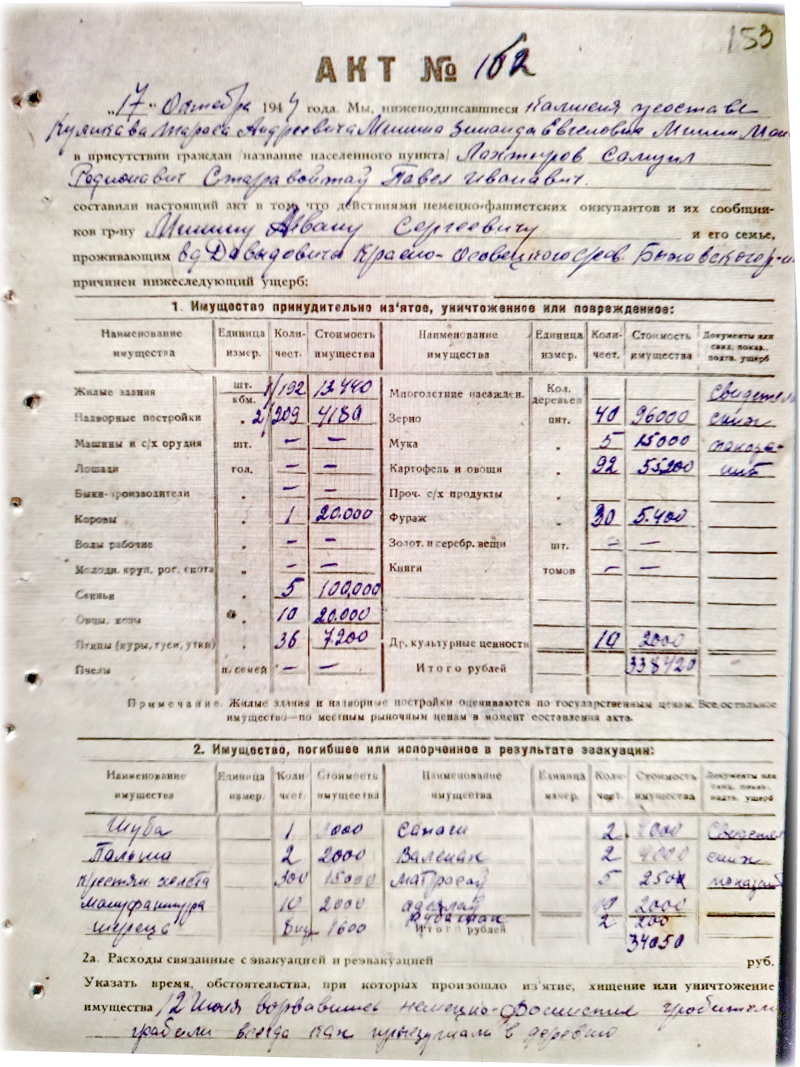 153
АКТ № 162
„17“ Октября 1944 года. Мы, нижеподписавшиеся
Тараса Андреевича Мишина Евгеновия Мишин
в присутствии граждан /название населенного пункта/ Самуил
Родионавич Старавойтав Павел Иванавич.
составили настоящий акт в том что действиями немецко-фашистских оккупантов и их сообщни-
ков гр-ну Мишину Ивану Сергеевичу и его семье,
проживающим в д Давыдовичи Красно-Осовецкого Быховского р-
причинен нижеследующий ущерб:
1. Имущество принудительно из'ятое, уничтоженное или поврежденное:
Наименование имущества Единица измер. Коли-чест. Стоимость имущества Наименование имущества Единица измер. Коли-чест. Стоимость имущества Документы или свид. показ., подтв. ущерб
Жилые здания шт. кбм. 1/192 13.440 Многолетние насажден. Кол. деревьев
Надворные постройки „ 2/209 4180 Зерно цнт. 40 96000
Машины и с/х орудия шт. — — Мука „ 5 15000
Лошади гол. — — Картофель и овощи „ 92 55200
Быки-производители „ — — Проч. с/х продукты „
Коровы „ 1 20.000 Фураж „ 30 5.400
Волы рабочие „ — — Золот. и серебр. вещи шт. — —
Молодн. круп. рог. скота „ — — Книги томов — —
Свиньи „ 5 100,000
Овцы, козы „ 10 20.000
Птицы (куры, гуси, утки) „ 36 7.200 Др. культурные ценности 10 2000
Пчелы п. семей — — Итого рублей 338420
Примечание. Жилые здания и надворные постройки оцениваются по государственным ценам. Все остальное
имущество—по местным рыночным ценам в момент составления акта.
2. Имущество, погибшее или испорченное в результате эвакуации:
Наименование имущества Единица измер. Коли-чест. Стоимость имущества Наименование имущества Единица измер. Коли-чест. Стоимость имущества Документы или свид. показ., подтв. ущерб
Шуба 1 Сапаги 2
Пальта 2 2000 Валенак 2 4000
Крестян. холста 300 15000 Матрасав 5 2500
Мануфактура 10 2000 адеялав 10 2000
Шерсць 1600 Рубашак 2 200
Итого рублей 34050
2а. Расходы связанные с эвакуацией и реэвакуацией руб.
Указать время, обстоятельства, при которых произошло из'ятие, хищение или уничтожение
имущества 12 Июля ворвавшись немецко-фосисткие грабители
грабили всегда как приезжали в деревню